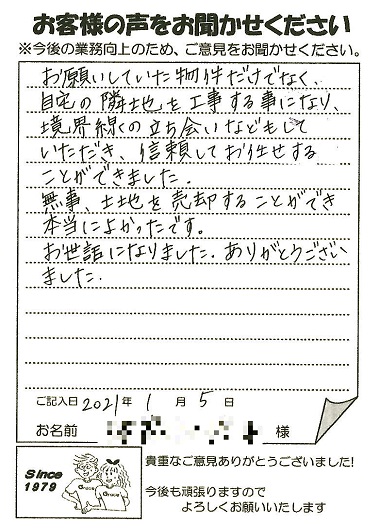 お客様の声をお聞かせください
※今後の業務向上のため、ご意見をお聞かせください。
お願いしていた物件だけでなく、
自宅の隣地を工事する事になり、
境界線の立ち会いなどもして
いただき、信頼してお任せする
ことができました。
無事、土地を売却することができ
本当によかったです。
お世話になりました。ありがとうござい
ました。
ご記入日 2021年 1月 5日
お名前 様
Since
1979
Grace
Grace
貴重なご意見ありがとうございました!
今後も頑張りますので
よろしくお願いいたします